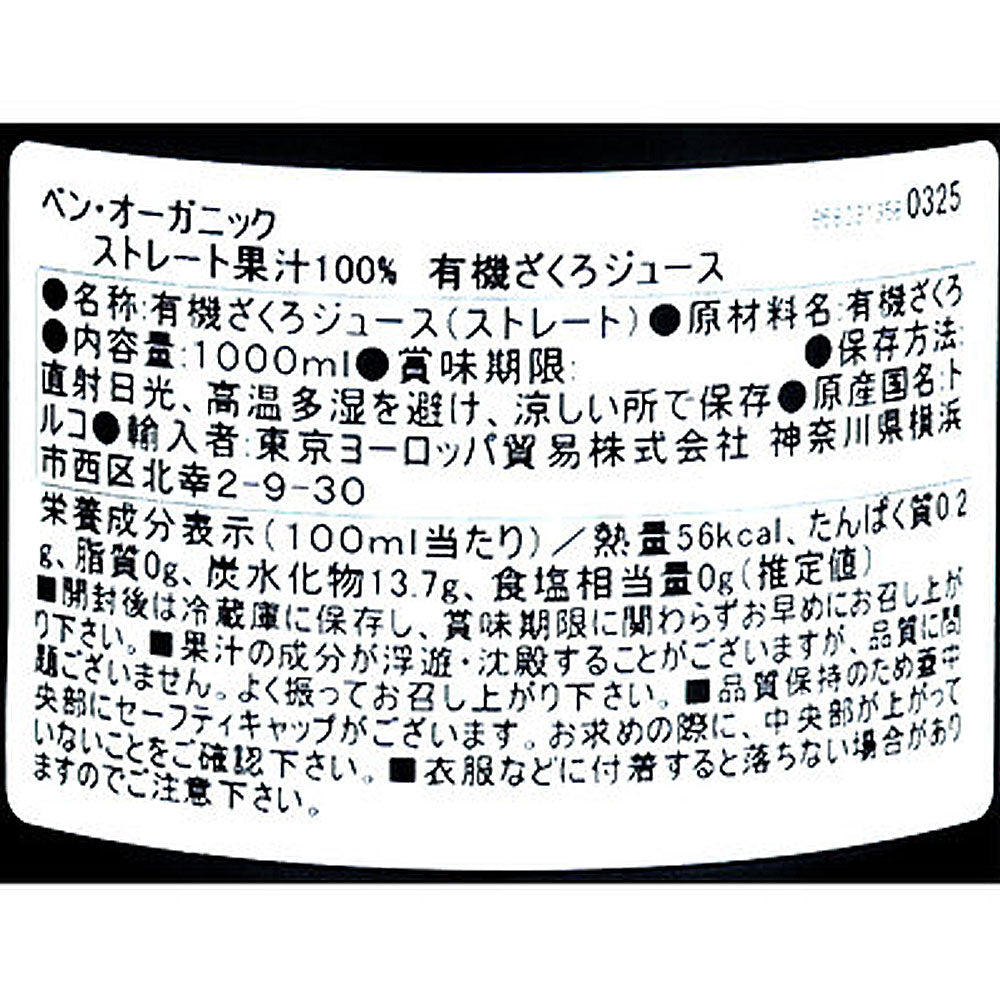 ベン・オーガニック 0325
ストレート果汁100% 有機ざくろジュース
●名称:有機ざくろジュース(ストレート)●原材料名:有機ざくろ
●内容量:1000ml●賞味期限: ●保存方法:
直射日光、高温多湿を避け、涼しい所で保存●原産国名:ト
ルコ●輸入者:東京ヨーロッパ貿易株式会社 神奈川県横浜
市西区北幸2-9-30
栄養成分表示(100ml当たり)/熱量56kcal、たんぱく質0.2
g、脂質0g、炭水化物13.7g、食塩相当量0g(推定値)
■開封後は冷蔵庫に保存し、賞味期限に関わらずお早めにお召し上が
り下さい。■果汁の成分が浮遊・沈殿することがございますが、品質に問
題ございません。よく振ってお召し上がり下さい。■品質保持のため蓋中
央部にセーフティキャップがございます。お求めの際に、中央部が上がって
いないことをご確認下さい。■衣服などに付着すると落ちない場合があり
ますのでご注意下さい。